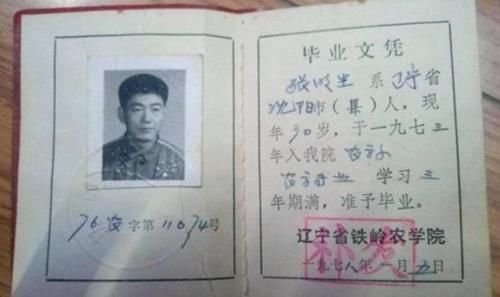 76农字第110374号
毕业文凭
张 生系辽宁省
沈阳市（县）人，现
年30岁，于一九七三
年入我院农 
农 专业 学习三
年期满，准予毕业。
辽宁省铁岭农学院
补发
一九七八年一月五日